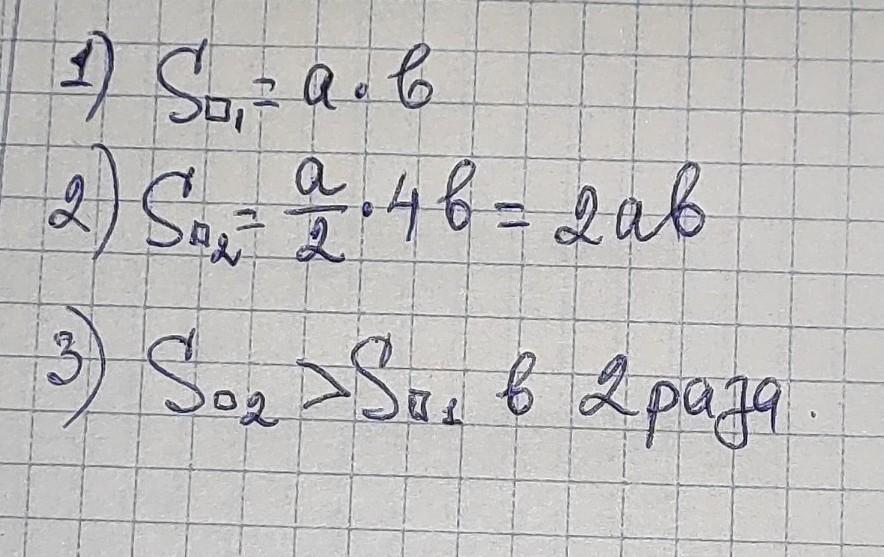 1) S□₁ = a · b
2) S□₂ = a/2 · 4b = 2ab
3) S□₂ > S□₁ в 2 раза.